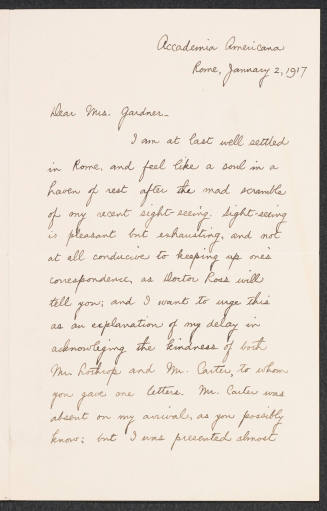 Accademia Americana
Rome, January 2, 1917
Dear Mrs. Gardner—
I am at last well settled
in Rome, and feel like a soul in a
haven of rest after the mad scramble
of my recent sight-seeing. Sight-seeing
is pleasant but exhausting, and not
at all conducive to keeping up one's
correspondence, as Doctor Ross will
tell you; and I want to urge this
as an explanation of my delay in
acknowleging the kindness of both
Mr. Rothrop and Mr. Carter, to whom
you gave one letters. Mr. Carter was
absent on my arrival, as you possibly
know; but I was presented almost